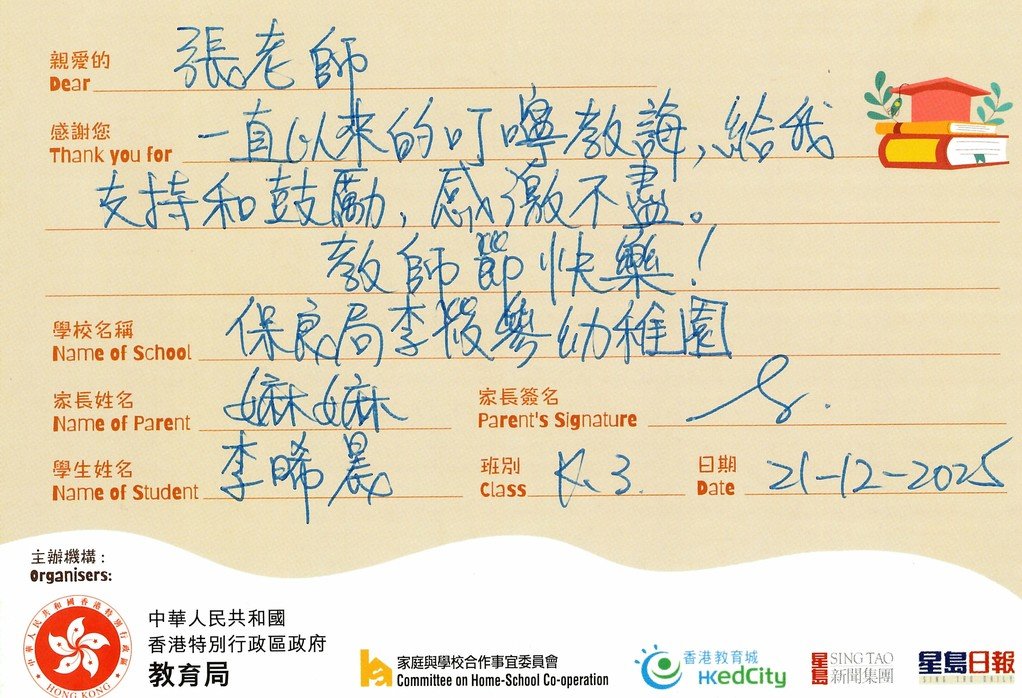 親愛的 張老師
Dear
感謝您 一直以來的叮嚀教誨,給我
Thank you for
支持和鼓勵,感激不盡。
教師節快樂!
學校名稱 保良局李筱參幼稚園
Name of School
家長姓名 嫲嫲 家長簽名
Name of Parent Parent's Signature
學生姓名 李晞晨 班別 K.3. 日期 21-12-2025
Name of Student Class Date
主辦機構:
Organisers:
中華人民共和國香港特別行政區政府
HONG KONG
中華人民共和國
香港特別行政區政府
教育局
家庭與學校合作事宜委員會
Committee on Home-School Co-operation
香港教育城
HKedCity
星島 SING TAO
新聞集團
星島日報
SING TAO DAILY